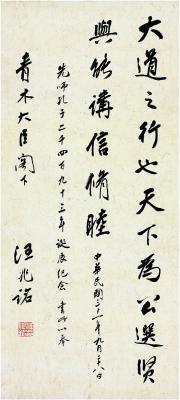 大道之行也天下為公選賢
與能講信脩睦
中華民國三十一年九月二十八日
先師孔子二千四百九十三年誕辰紀念 書此以奉
青木大臣閣下
汪兆銘